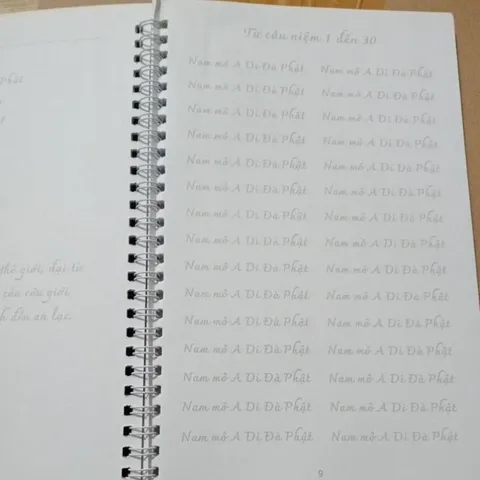 thế giới, đại từ
giới
đều an lạc.
Từ câu niệm 1 đến 30
Nam mô A Di Đà Phật Nam mô A Di Đà Phật
Nam mô A Di Đà Phật Nam mô A Di Đà Phật
Nam mô A Di Đà Phật Nam mô A Di Đà Phật
Nam mô A Di Đà Phật Nam mô A Di Đà Phật
Nam mô A Di Đà Phật Nam mô A Di Đà Phật
Nam mô A Di Đà Phật Nam mô A Di Đà Phật
Nam mô A Di Đà Phật Nam mô A Di Đà Phật
Nam mô A Di Đà Phật Nam mô A Di Đà Phật
Nam mô A Di Đà Phật Nam mô A Di Đà Phật
Nam mô A Di Đà Phật Nam mô A Di Đà Phật
Nam mô A Di Đà Phật Nam mô A Di Đà Phật
Nam mô A Di Đà Phật Nam mô A Di Đà Phật
Nam mô A Di Đà Phật Nam mô A Di Đà Phật
Nam mô A Di Đà Phật Nam mô A Di Đà Phật
Nam mô A Di Đà Phật Nam mô A Di Đà Phật
9